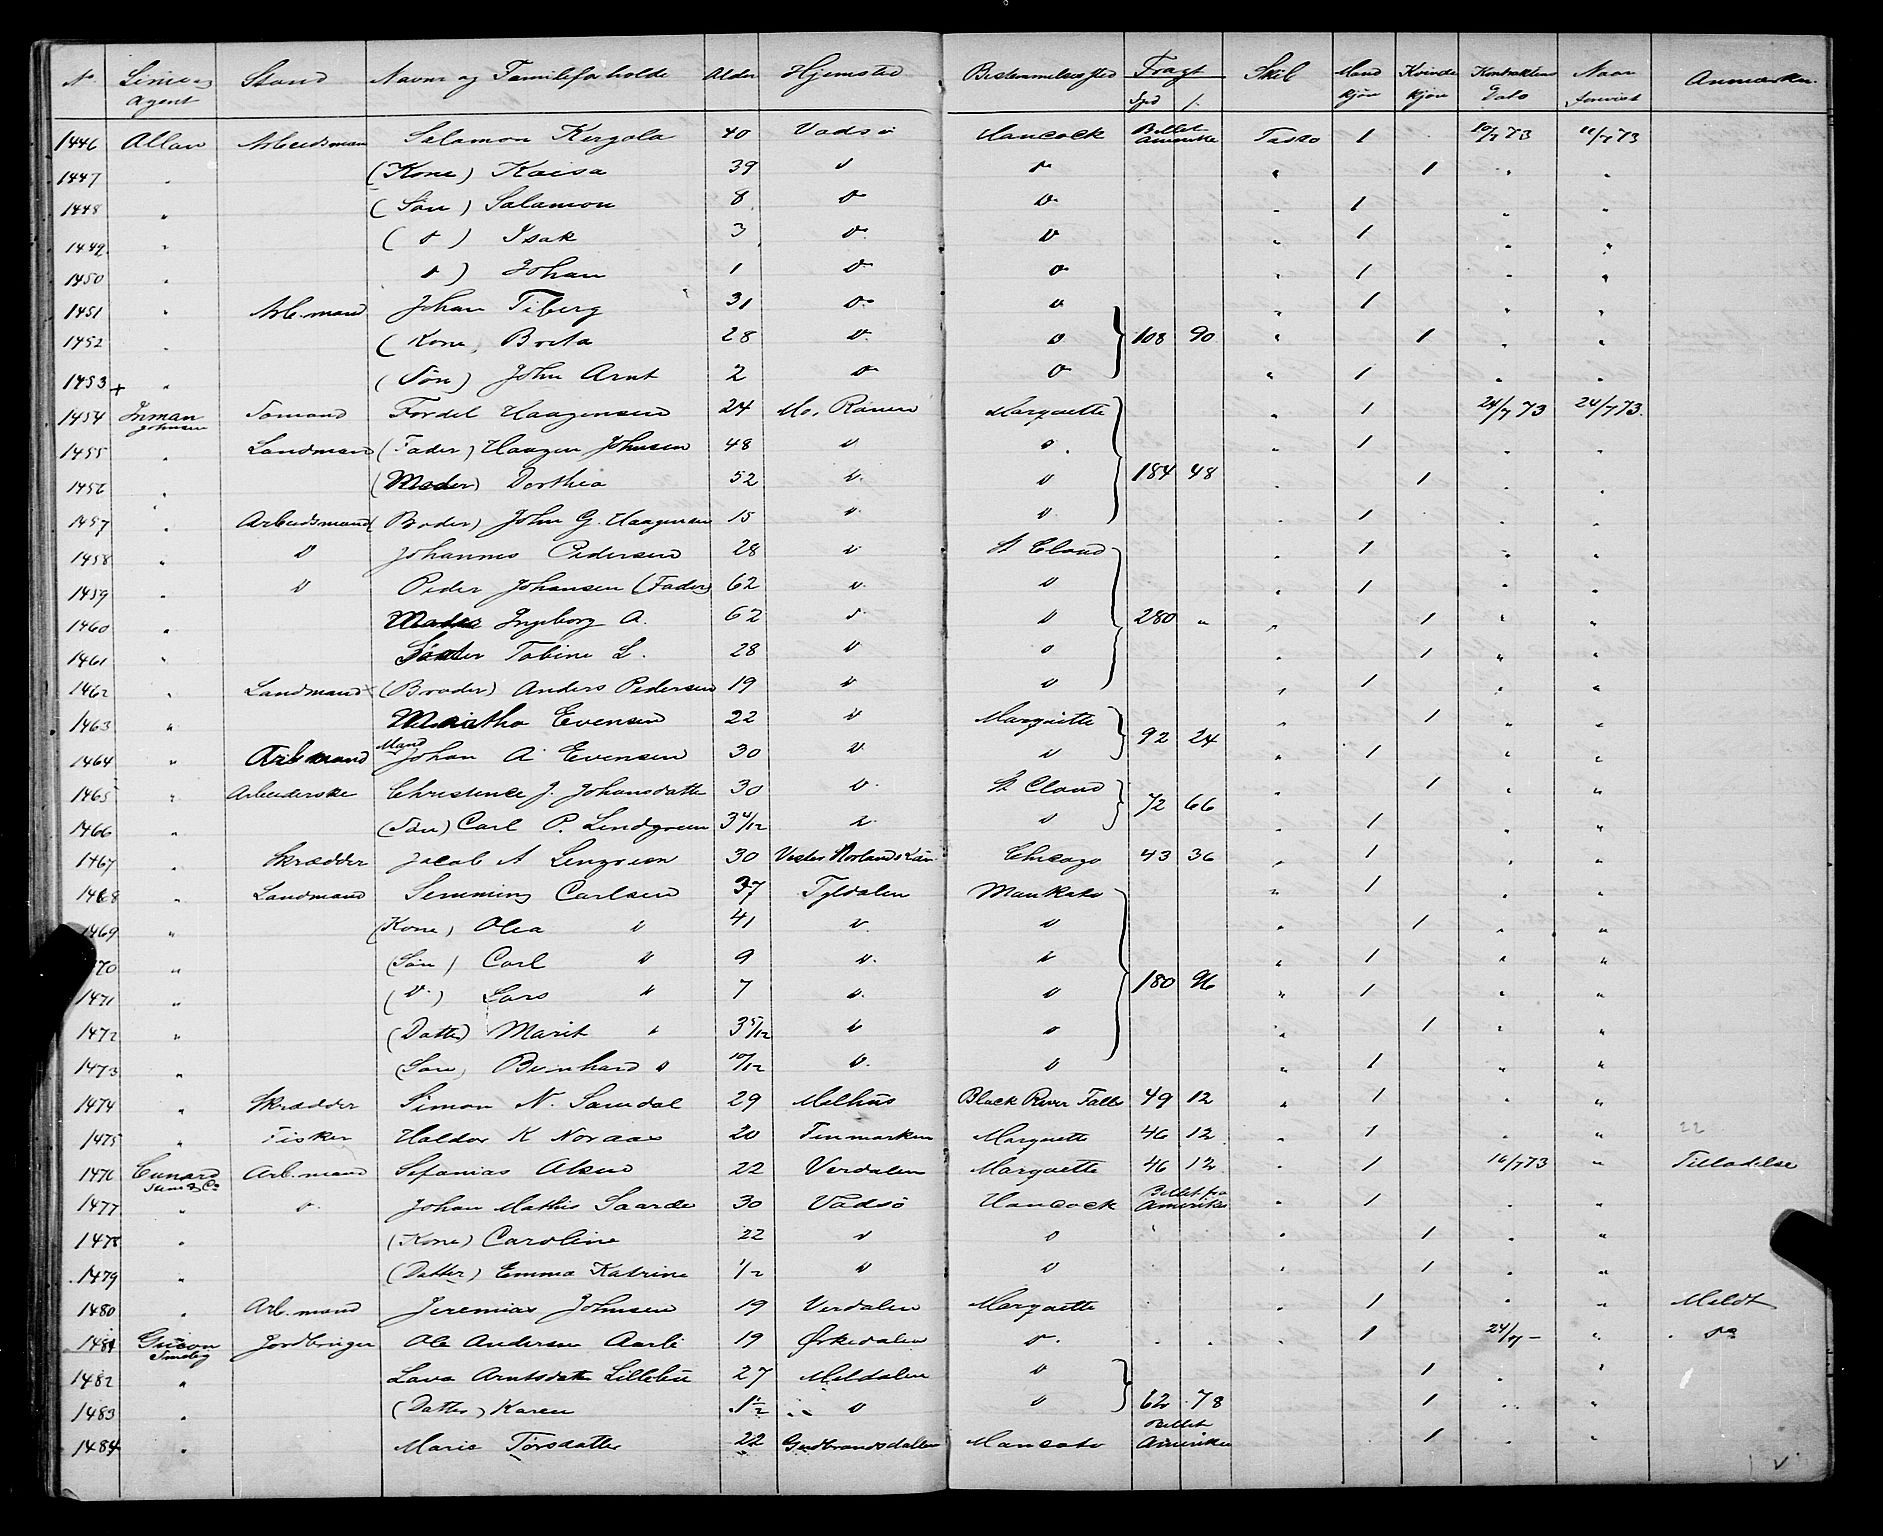 No. Linie og Agent Stand Navne og Familieforholde Alder Hjemsted Bestemmelsessted Fragt Spd / Skib Mand kjøn Kvinde kjøn Kontraktens Dato Naar Anmærkn.
1446 Allan Arbeidsmand Salamon Kergola 40 Vadsö Hancock Billet Amerika Tasso 1 10/7 73 /7 73
1447 " (Kone) Kaisa 39 " " " 1 " "
1448 " (Sön) Salamon 8 " " " 1 " "
1449 " ( " ) Isak 3 " " " 1 " "
1450 " " ) Johan 1 " " " 1 " "
1451 " Arb.mand Johan Tiberg 31 " " " 1 " "
1452 " (Kone, Brita 28 " " 108 90 " 1 " "
1453 + " (Sön) John Arnt 2 " " " 1 " "
1454 Inman Johnsen Sömand Fordel Haagensen 24 Mo, Ranen Marquette " 1 24/7 73 24/7 73
1455 " Landmand (Fader) Haagen Johnsen 48 " " " 1 " "
1456 " (Moder) Dorthea 52 " " 184 48 " 1 " "
1457 " Arbeidsmand (Broder) John G. Haagensen 15 " " " 1 " "
1458 " " Johannes Pedersen 28 " St Cloud " 1 " "
1459 " " Peder Johansen (Fader) 62 " " " 1 " "
1460 " Moder Ingeborg A. 62 " " 280 " " 1 " "
1461 " Söster Tobine L. 28 " " " 1 " "
1462 " Landmand (Broder) Anders Pedersen 19 " " " 1 " "
1463 " Maritha Evensen 22 " Marquette " 1 " "
1464 " Arb mand Mand Johan A Evensen 30 " " 92 24 " 1 " "
1465 " Arbeiderske Christence J. Johansdatter 30 " St Cloud " 1 " "
1466 " (Sön) Carl P. Lindgreen 3 4/12 " " 72 66 " 1 " "
1467 " Skrædder Jacob A Lengreen 30 Vester Norlands Län Chicago 43 36 " 1 " "
1468 " Landmand Semming Carlsen 37 Tyldalen Mankato " 1 " "
1469 " (Kone) Olea " 41 " " " 1 " "
1470 " (Sön) Carl " 9 " " " 1 " "
1471 " ( " ) Lars " 7 " " 180 96 " 1 " "
1472 " (Datter) Marit " 3 5/12 " " " 1 " "
1473 " (Sön, Bernhard " 10/12 " " " 1 " "
1474 " Skrædder Simon N. Samdal 29 Melhus Black River Falls 49 12 " 1 " "
1475 " Fisker Haldor K Noraas 20 Finmarken Marquette 46 12 " 1 " " 22
1476 Cunard & Co Arb.mand Sefanias Olsen 22 Verdalen Marquette 46 12 " 1 16/7 73 " Tilladelse
1477 " " Johan Mathis Saarde 30 Vadsö Hancock Billet fra Amerika " 1 " "
1478 " (Kone) Caroline 22 " " " 1 " "
1479 " (Datter) Emma Katrine 1/2 " " " 1 " "
1480 " Arb.mand Jeremias Johnsen 19 Verdalen Marquette " 1 " " Meldt
1481 Guion Jordbruger Ole Andersen Aarli 19 Ørkedalen " " " " 1 24/7 - " do
1482 " Lava Arntsdatt Lillebu 27 Meldalen " 1 " "
1483 " (Datter) Karen 1 1/2 " " 62 78 1 " "
1484 " Marie Törsdatter 22 Gudbrandsdalen Mancato Billet Amerika 1 " "